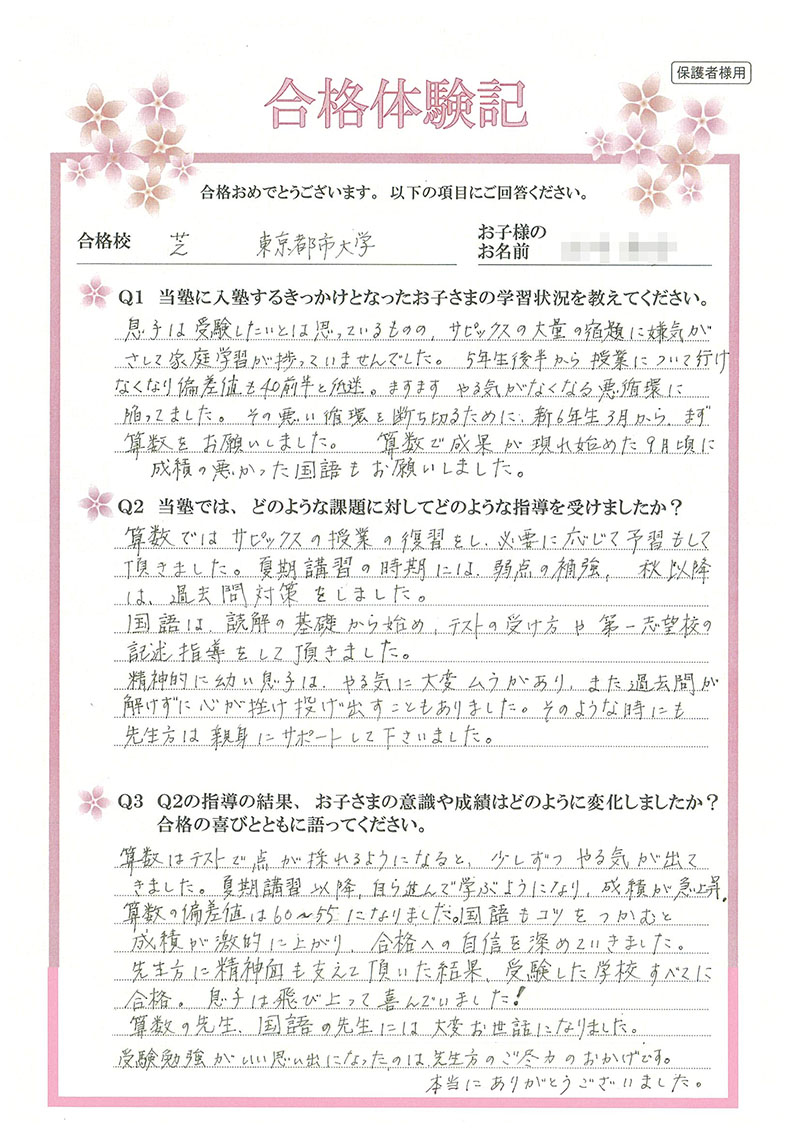 保護者様用
合格体験記
合格おめでとうございます。以下の項目にご回答ください。
合格校 芝 東京都市大学 お子様の
お名前
Q1 当塾に入塾するきっかけとなったお子さまの学習状況を教えてください。
息子は受験したいとは思っているものの、サピックスの大量の宿題に嫌気が
さして家庭学習が捗っていませんでした。 5年生後半から授業について行け
なくなり偏差値も40前半と低迷。ますます やる気がなくなる悪循環に
陥ってました。 その悪い循環を断ち切るために、新6年生3月から、まず
算数をお願いしました。 算数で成果が現れ始めた9月頃に
成績の悪かった国語もお願いしました。
Q2 当塾では、どのような課題に対してどのような指導を受けましたか？
算数ではサピックスの授業の復習をし、必要に応じて予習もして
頂きました。夏期講習の時期には、弱点の補強、 秋以降
は、過去問対策をしました。
国語は、読解の基礎から始め、テストの受け方や第一志望校の
記述指導をして頂きました。
精神的に幼い息子は、やる気に大変ムラがあり、また過去問が
解けずに心が挫け投げ出すこともありました。そのような時にも
先生方は親身にサポートして下さいました。
Q3 Q2の指導の結果、お子さまの意識や成績はどのように変化しましたか？
合格の喜びとともに語ってください。
算数はテストで点が採れるようになると、少しずつやる気が出て
きました。夏期講習以降、自ら進んで学ぶようになり、成績が急上昇。
算数の偏差値は60〜55になりました。国語もコツをつかむと
成績が激的に上がり、合格への自信を深めていきました。
先生方に精神面も支えて頂いた結果、受験した学校すべてに
合格。 息子は飛び上って喜んでいました!
算数の先生、国語の先生には大変お世話になりました。
受験勉強がいい思い出になったのは、先生方のご尽力のおかげです。
本当にありがとうございました。